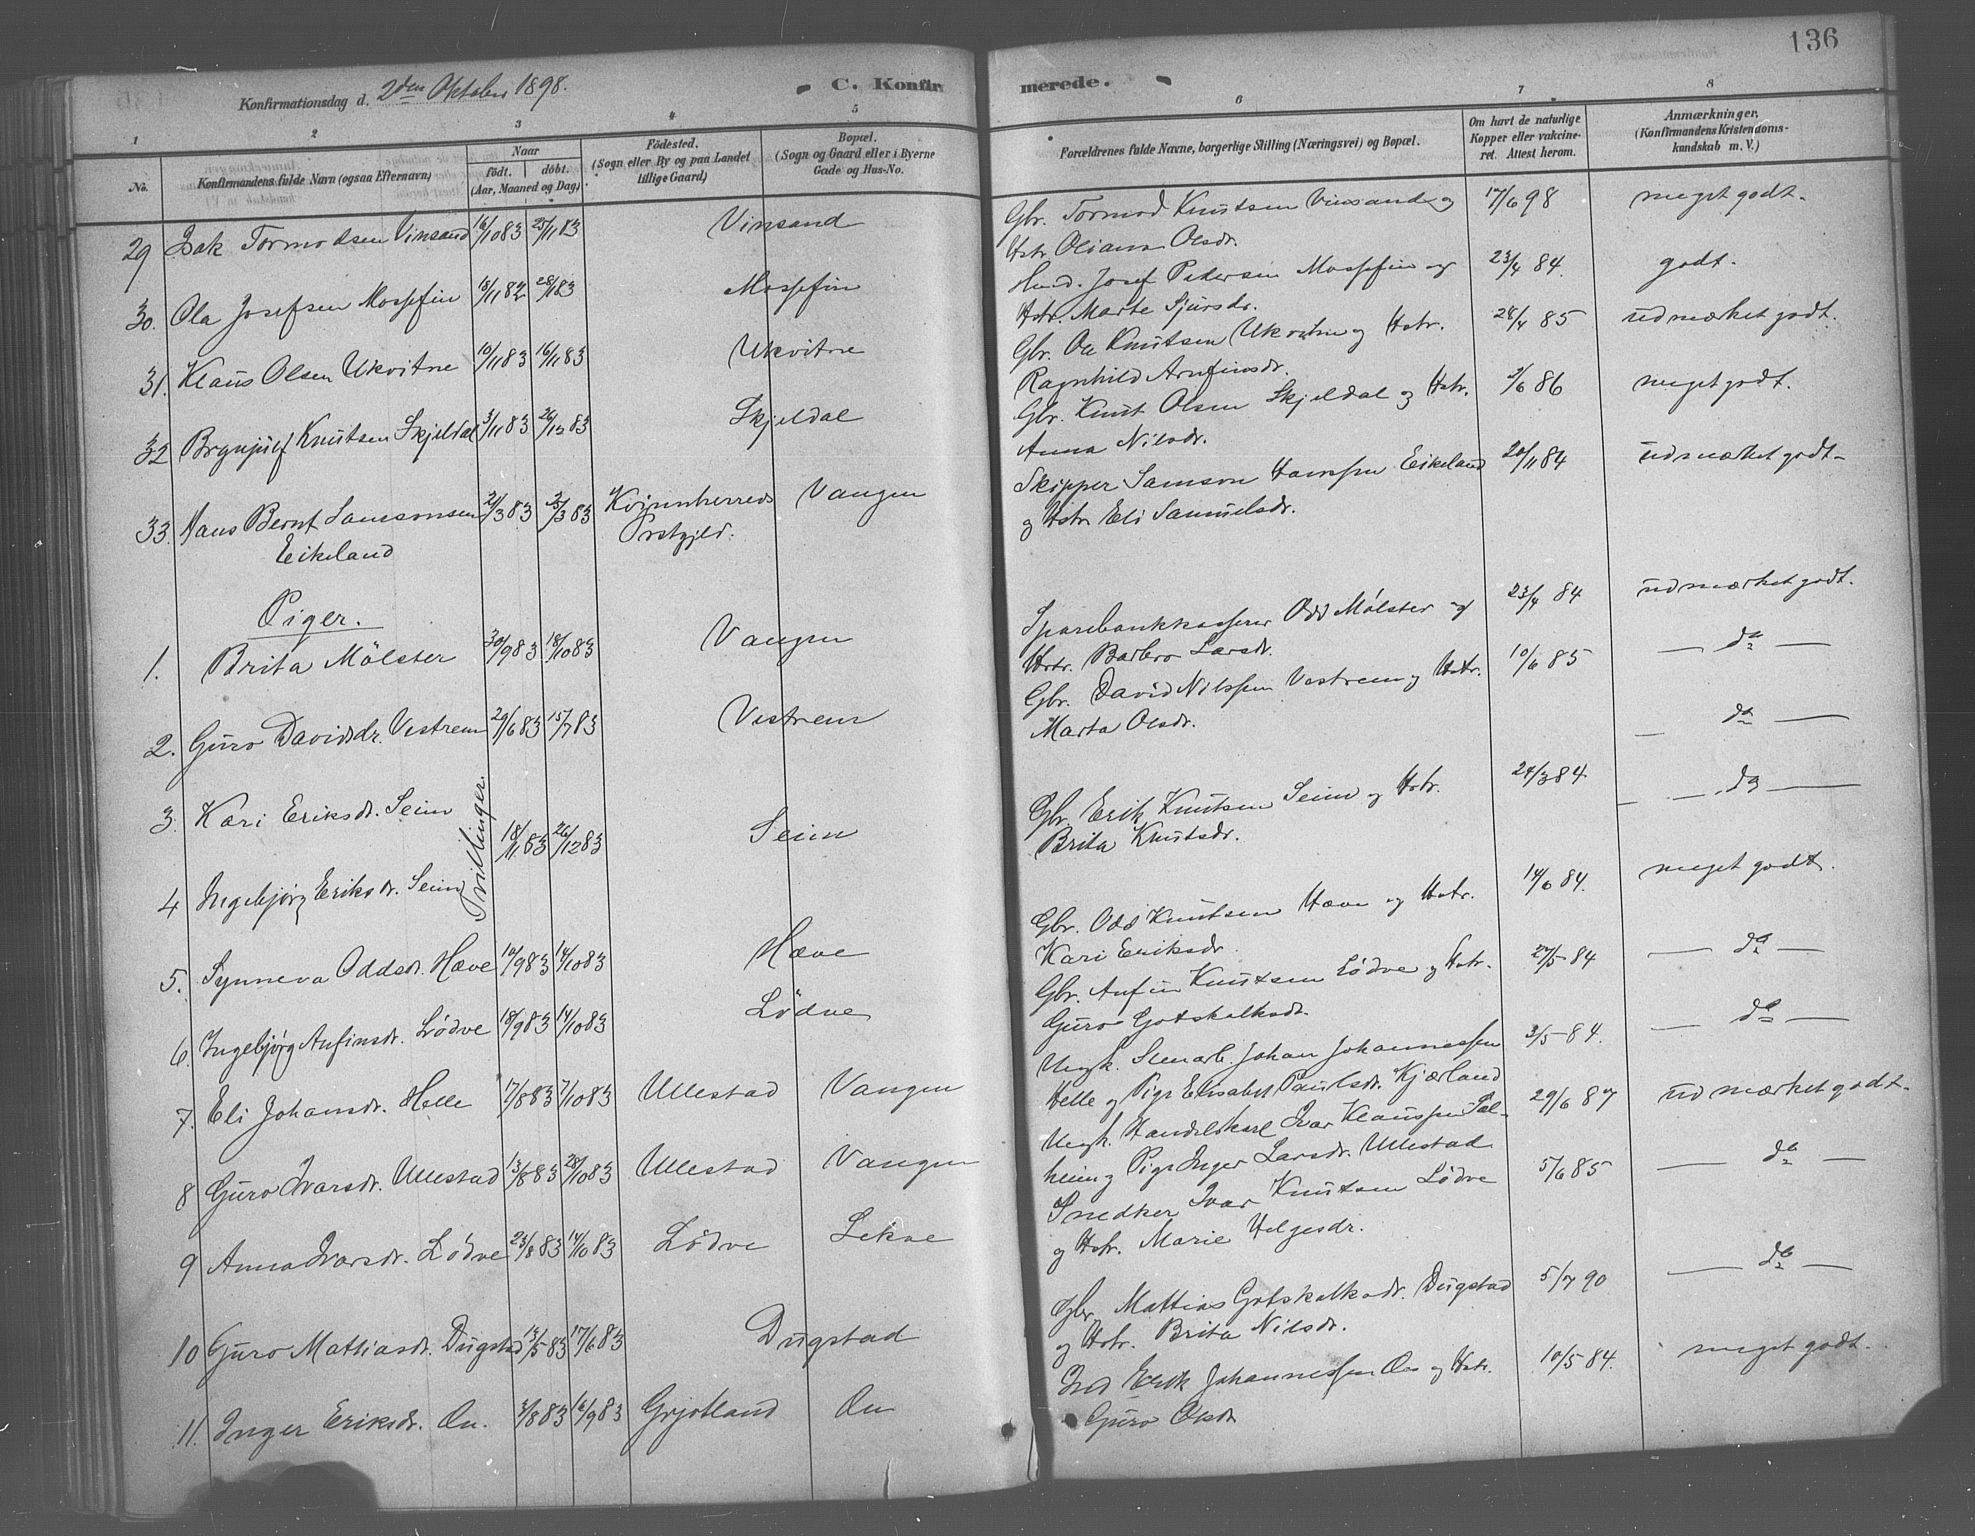 136
Konfirmationsdag d. 2den Oktober 1898.
C. Konfir
merede.
1 2 3 4 5 6 7 8
No.
Konfirmandens fulde Navn (ogsaa Efternavn)
Naar
födt. döbt.
(Aar, Maaned og Dag)
Födested.
(Sogn eller By og paa Landet
tillige Gaard)
Bopæl.
(Sogn og Gaard eller i Byerne
Gade og Hus-No.
Forældrenes fulde Navne, borgerlige Stilling (Næringsvei) og Bopæl.
Om havt de naturlige
Kopper eller vakcine-
ret. Attest herom.
Anmærkninger.
(Konfirmandens Kristendoms-
kundskab m. V.)
29 Isak Tormodsen Vinsand 16/10 83 25/11 83 Vinsand
Gbr. Tormod Knutsen Vinsand og 17/6 98 meget godt.
Hstr. Oliana Olsdr.
30. Ola Josefsen Mossefin 18/11 82 28/1 83 Mossefin
Hmd. Josef Pedersen Mossefin og 23/4 84. godt.
Hstr. Marte Sjursdr.
31. Klaus Olsen Ukvitne 10/11 83 16/11 83 Ukvitne
Gbr. Ole Knutsen Ukvitne og Hstr. 28/4 85 udmærket godt.
Ragnhild Arnfinsdr.
32 Brynjulf Knutsen Skjeldal 3/11 83 26/12 83 Skjeldal
Gbr. Knut Olsen Skjeldal og Hstr. /6 86 meget godt.
Anna Nilsdr.
33. Hans Bernt Samsonsen 2/3 83 25/3 83 Kvinnherreds Vangen
Eikeland Prstgjld.
Skipper Samson Hanssen Eikeland 20/11 84 udmærket godt.
og Hstr. Eli Samuelsdr.
Piger.
1. Brita Mölster 30/9 83 18/10 83 Vangen
Sparebankkasserer Odd Mølster og 23/4 84 udmærket godt.
Hstr. Barbro Larsdr.
2. Guro Davidsdr. Vestrem 29/6 83 15/7 83 Vestrem
Gbr. David Nilssen Vestrem og Hstr. 10/6 85 — do —
Marta Olsdr.
— do —
3. Kari Eriksdr. Seim
Tvillinger. 18/11 83 26/12 83 Seim
Gbr. Erik Knutsen Seim og Hstr. 24/3 84. — do —
Brita Knutsdr.
4 Ingebjørg Eriksdr. Seim
5. Synneva Oddsdr. Hæve 10/9 83 14/10 83 Hæve
Gbr. Odd Knutsen Hæve og Hstr. 14/6 84. meget godt.
Kari Eriksdr.
6. Ingebjørg Anfinsdr. Lødve 18/9 83 14/10 83 Lødve
Gbr. Anfin Knutsen Lødve og Hstr. 27/5 84 — do —
Guro Gotskalksdr.
7. Eli Johansdr. Helle 17/8 83 7/10 83 Ullestad Vangen
Ungk. Stenarb. Johan Johannessen 3/5 84. — do —
Helle og Pige Elisabet Paulsdr. Kjærland
8 Guro Ivarsdr. Ullestad 13/8 83 28/10 83 Ullestad Vangen
Ungk. Handelskarl Ivar Klaussen Sæl- 29/6 87 udmærket godt.
heim og Pige Inger Larsdr. Ullestad
9 Anna Ivarsdr. Lødve 23/8 83 14/10 83 Lødve Lekve
Snedker Ivar Knutsen Lødve 5/6 85 — do —
og Hstr. Marie Helgesdr.
10 Guro Mathiasdr. Dugstad 13/5 83 17/6 83 Dugstad
Gbr. Mattias Gotskalksdr. Dugstad 5/7 90 — do —
og Hstr. Brita Nilsdr.
11. Inger Eriksdr. Øn. /8 83 16/9 83 Grjotland Øn
Erik Johannessen Øn og Hstr. 10/5 84. meget godt.
Guro Olsdr